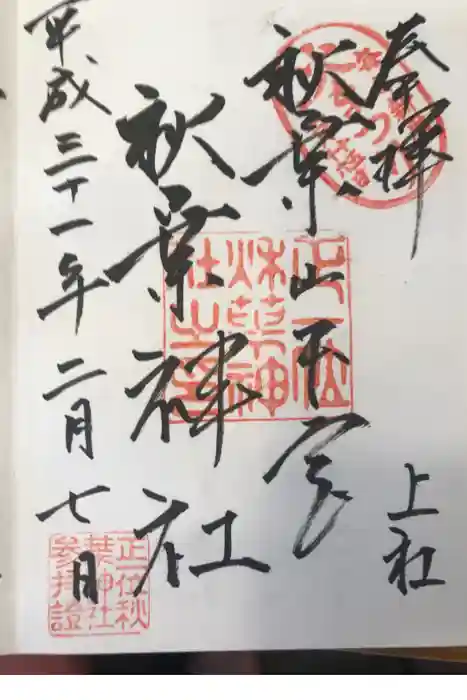 奉拝
上社
秋葉山本宮
秋葉神社
平成三十一年二月七日
正一位
秋葉神
社之印
正一位秋
葉神社
参拝證